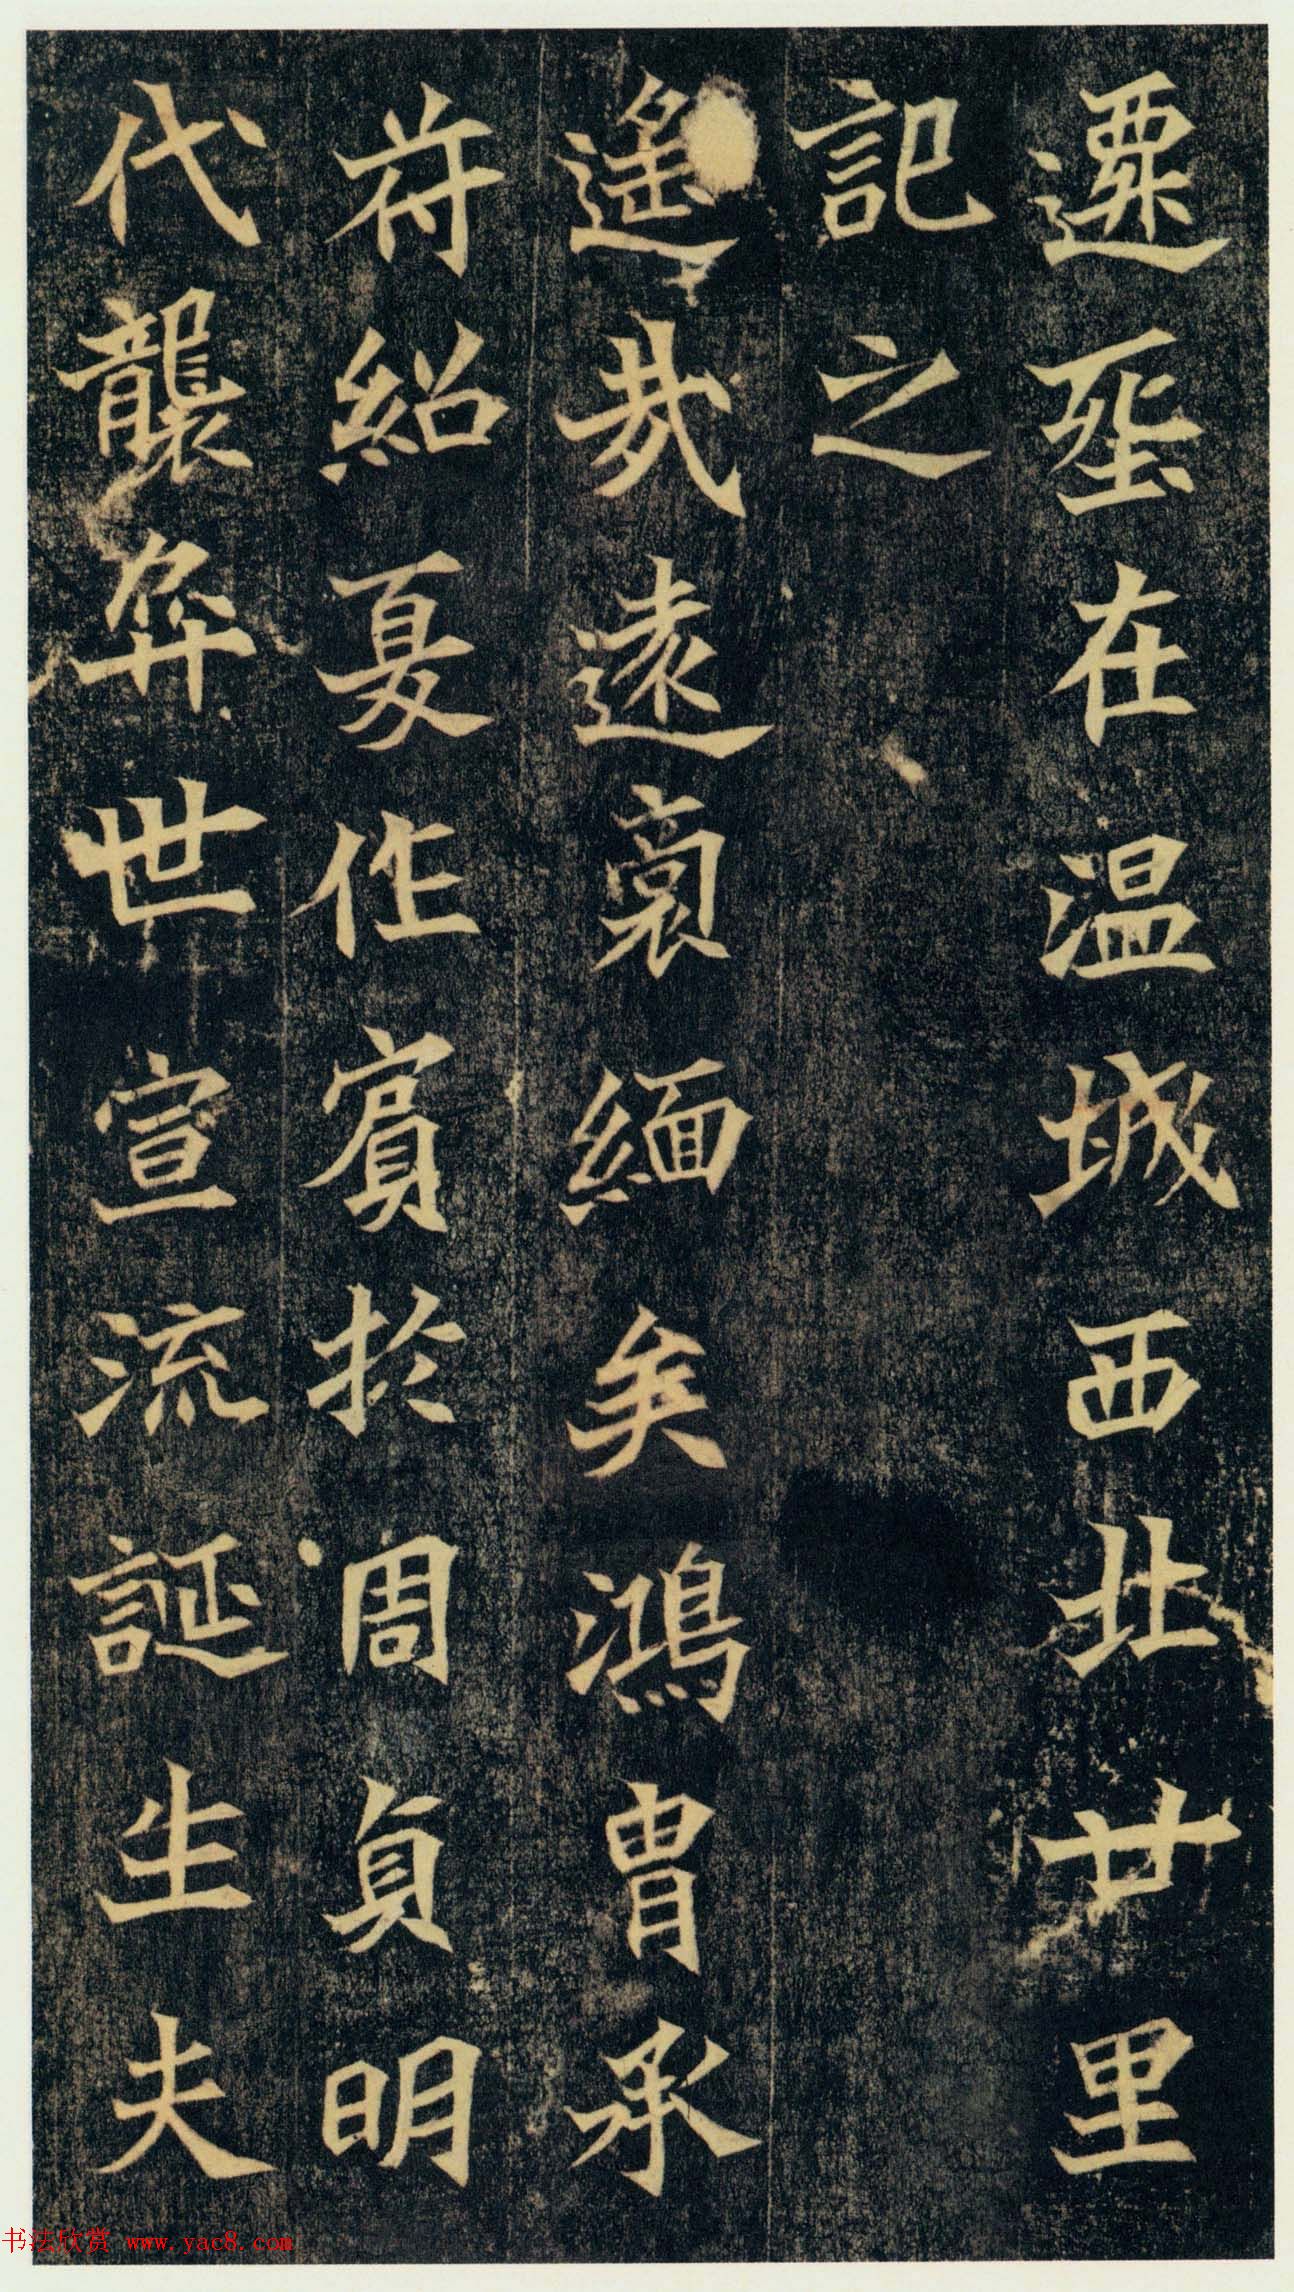 遷塋在温城西北廿里
記之
遥哉遠裔緬矣鴻胄承
苻紹夏作賓於周貞明
代襲弈世宣流誕生夫
书法欣赏 www.yac8.com